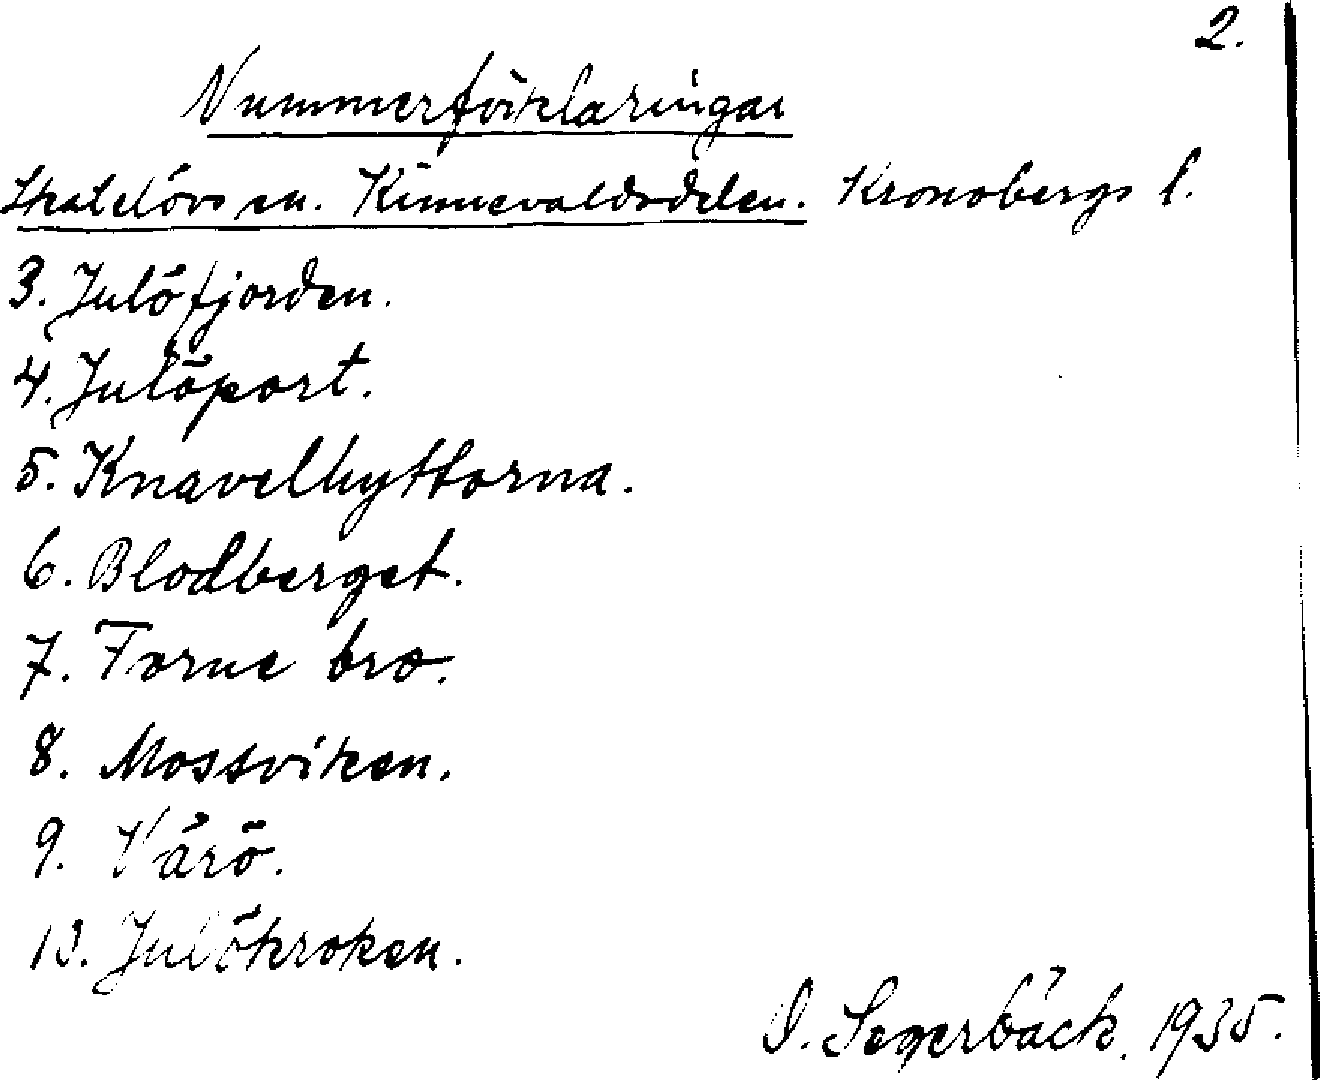 2.
Nummerförklaringar
Skatelövs sn. Kinnevaldsdelen. Kronobergs l.
3. Julöfjorden.
4. Julöport.
5. Knavelhyttorna.
6. Blodberget.
7. Forne bro.
8. Mossviken.
9. Vårö.
10. Julökroken.
O. Segerbäck. 1935.